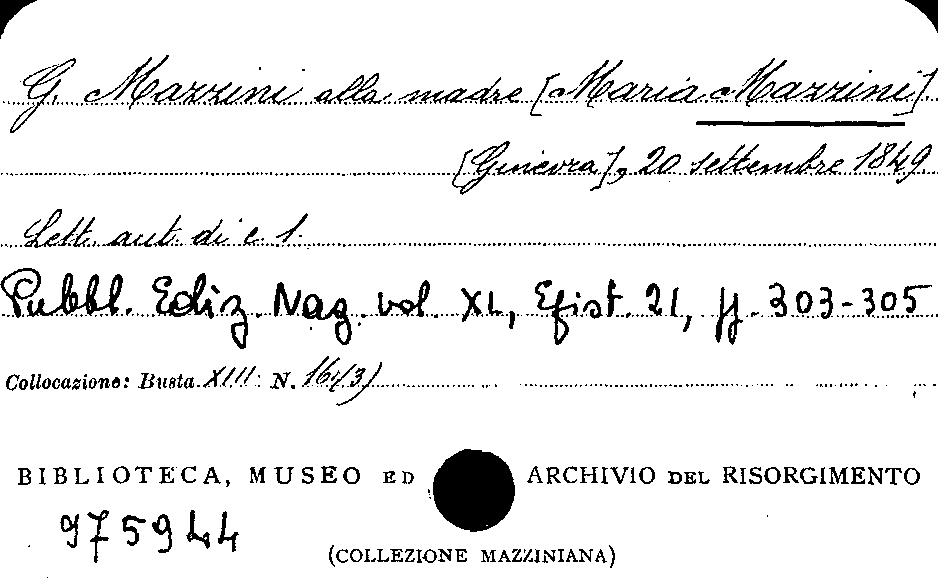 G. Mazzini alla madre [Maria Mazzini].
[Ginevra], 20 settembre 1849.
Lett. aut. di c. 1.
Pubbl. Ediz. Naz. vol. XL, Epist. 21, pp. 303-305
Collocazione: Busta XIII N. 16(/3)
BIBLIOTECA, MUSEO ED ARCHIVIO DEL RISORGIMENTO
975944
(COLLEZIONE MAZZINIANA)